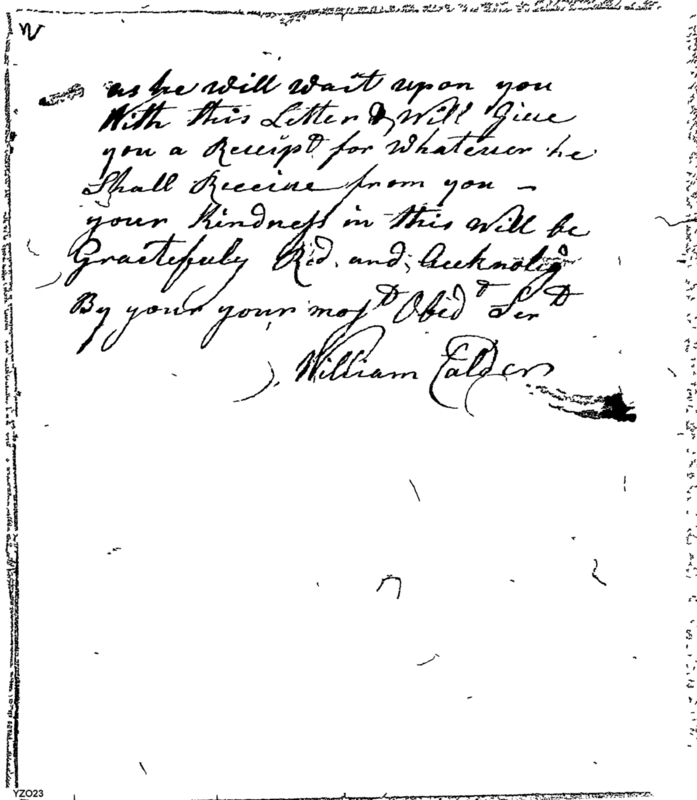 as he will wait upon you
With this Letter & Will Give
you a Receipt for whatever he
Shall Receive from you –
your Kindness in this will be
Gracetefuly Red. and, Acknolig'd
By your your most Obed^t Ser^t
William Calder
YZ023